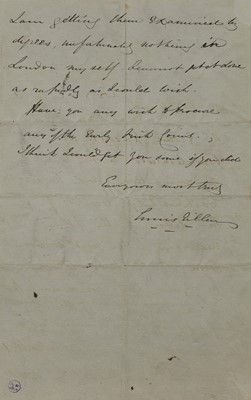 I am getting them examined by
degrees unfortunately nothing in
London myself I cannot get it done
as rapidly as I could wish.
Have you any wish to procure
any of the Early Irish Coins.
I think I could get you some if you did
Ever yours most truly